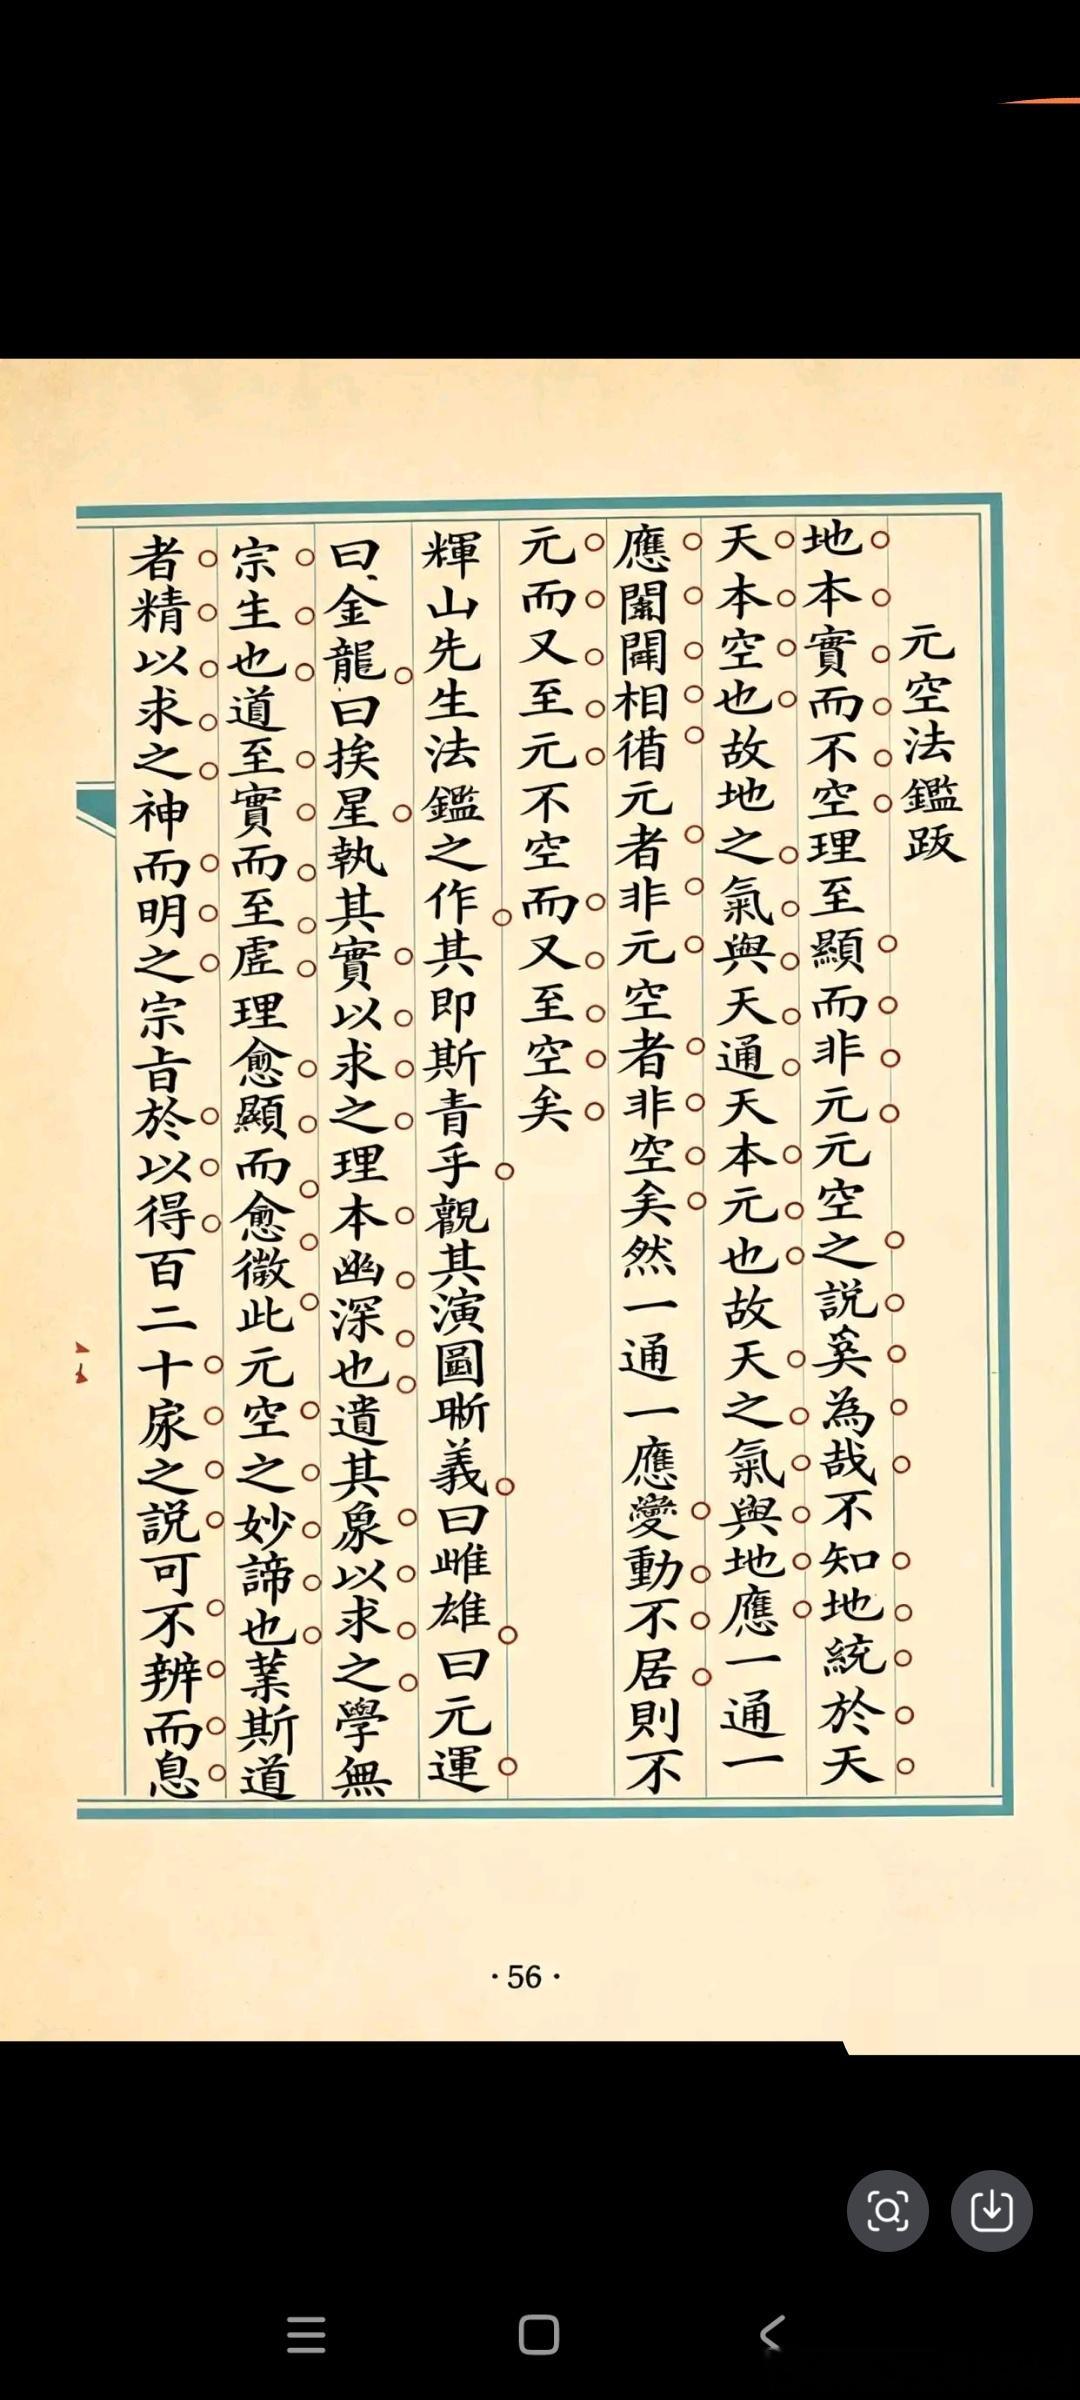 元空法鑑跋
地本實而不空理至顯而非元元空之説奚為哉不知地統於天
天本空也故地之氣與天通天本元也故天之氣與地應一通一
應闔闢相循元者非元空者非空矣然一通一應變動不居則不
元而又至元不空而又至空矣
輝山先生法鑑之作其即斯青乎觀其演圖晰義曰雌雄曰元運
曰金龍曰挨星執其實以求之理本幽深也遺其象以求之學無
宗生也道至實而至虛理愈顯而愈微此元空之妙諦也業斯道
者精以求之神而明之宗旨於以得百二十家之説可不辨而息
·56·